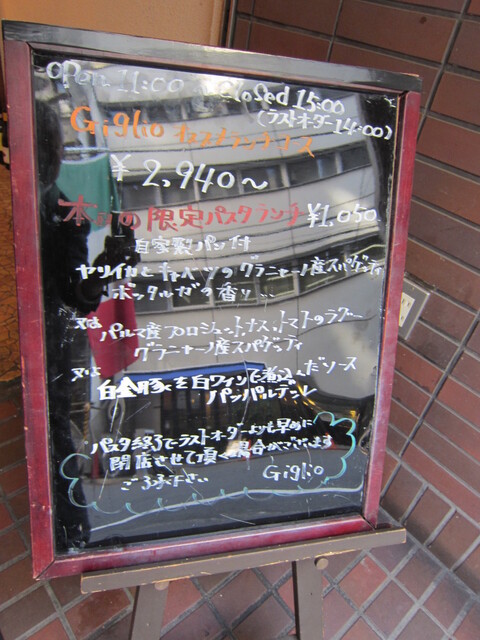 open 11:00〜closed 15:00
(ラストオーダー14:00)
Giglio オススメランチコース
¥2,940〜
本日の限定パスタランチ ¥1,050
自家製パン付
ヤリイカとキャベツのグラニャーノ産スパゲッティ
ボッタルガの香り...
又は パルマ産プロシュートナス、トマトのラグー
グラニャーノ産スパゲッティ
又は
白金豚を白ワインで煮込んだソース
パッパルデッレ
パスタ終了でラストオーダーよりも早めに
閉店させて頂く場合がございます
ご了承下さい Giglio